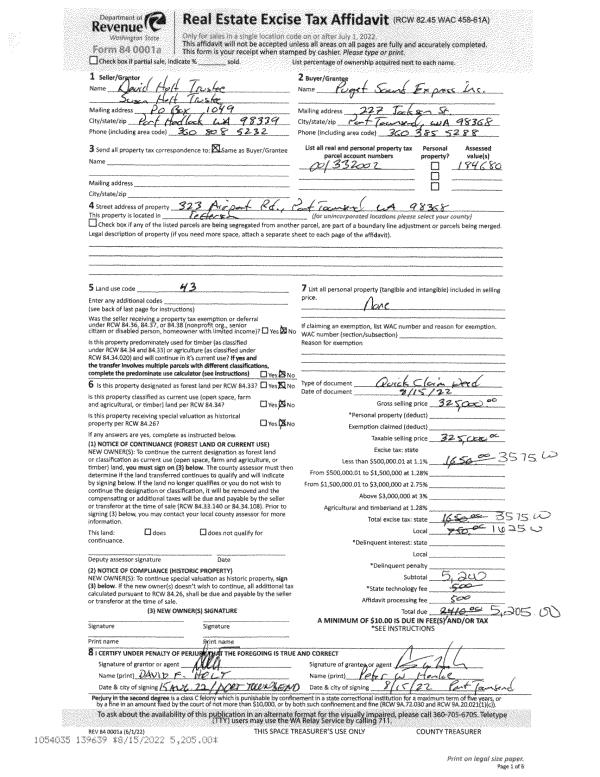 Department of
Revenue
Washington State
Form 84 0001a
Real Estate Excise Tax Affidavit (RCW 82.45 WAC 458-61A)
Only for sales in a single location code on or after July 1, 2022.
This affidavit will not be accepted unless all areas on all pages are fully and accurately completed.
This form is your receipt when stamped by cashier. Please type or print.
Check box if partial sale, indicate % ______ sold. List percentage of ownership acquired next to each name.
1 Seller/Grantor
Name David Holt Trustee
Susan Holt Trustee
Mailing address PO Box 1049
City/state/zip Port Hadlock WA 98339
Phone (including area code) 360 808 5232
2 Buyer/Grantee
Name Puget Sound Express Inc.
Mailing address 227 Jackson St.
City/state/zip Port Townsend, WA 98368
Phone (including area code) 360 385 5288
3 Send all property tax correspondence to: Same as Buyer/Grantee
Name
Mailing address
City/state/zip
List all real and personal property tax parcel account numbers
Personal property?
Assessed value(s)
001332002
194680
4 Street address of property 323 Airport Rd., Port Townsend WA 98368
This property is located in Jefferson (for unincorporated locations please select your county)
Check box if any of the listed parcels are being segregated from another parcel, are part of a boundary line adjustment or parcels being merged.
Legal description of property (if you need more space, attach a separate sheet to each page of the affidavit).
5 Land use code 43
Enter any additional codes
(see back of last page for instructions)
Was the seller receiving a property tax exemption or deferral
under RCW 84.36, 84.37, or 84.38 (nonprofit org., senior
citizen or disabled person, homeowner with limited income)? Yes No
Is this property predominately used for timber (as classified
under RCW 84.34 and 84.33) or agriculture (as classified under
RCW 84.34.020) and will continue in it's current use? If yes and
the transfer involves multiple parcels with different classifications,
complete the predominate use calculator (see instructions) Yes No
6 Is this property designated as forest land per RCW 84.33? Yes No
Is this property classified as current use (open space, farm
and agricultural, or timber) land per RCW 84.34? Yes No
Is this property receiving special valuation as historical
property per RCW 84.26? Yes No
If any answers are yes, complete as instructed below.
(1) NOTICE OF CONTINUANCE (FOREST LAND OR CURRENT USE)
NEW OWNER(S): To continue the current designation as forest land
or classification as current use (open space, farm and agriculture, or
timber) land, you must sign on (3) below. The county assessor must then
determine if the land transferred continues to qualify and will indicate
by signing below. If the land no longer qualifies or you do not wish to
continue the designation or classification, it will be removed and the
compensating or additional taxes will be due and payable by the seller
or transferor at the time of sale (RCW 84.33.140 or 84.34.108). Prior to
signing (3) below, you may contact your local county assessor for more
information.
This land: does does not qualify for
continuance.
Deputy assessor signature Date
(2) NOTICE OF COMPLIANCE (HISTORIC PROPERTY)
NEW OWNER(S): To continue special valuation as historic property, sign
(3) below. If the new owner(s) doesn't wish to continue, all additional tax
calculated pursuant to RCW 84.26, shall be due and payable by the seller
or transferor at the time of sale.
(3) NEW OWNER(S) SIGNATURE
Signature Signature
Print name Print name
7 List all personal property (tangible and intangible) included in selling
price.
None
If claiming an exemption, list WAC number and reason for exemption.
WAC number (section/subsection)
Reason for exemption
Type of document Quick Claim Deed
Date of document 8/15/22
Gross selling price 325,000.00
*Personal property (deduct)
Exemption claimed (deduct)
Taxable selling price 325,000.00
Excise tax: state
Less than $500,000.01 at 1.1% 1650.00 3575.00
From $500,000.01 to $1,500,000 at 1.28%
From $1,500,000.01 to $3,000,000 at 2.75%
Above $3,000,000 at 3%
Agricultural and timberland at 1.28%
Total excise tax: state 1650.00 3575.00
Local 750.00 1625.00
*Delinquent interest: state
Local
*Delinquent penalty
Subtotal 5,200
*State technology fee 5.00
Affidavit processing fee 5.00
Total due 2410.00 5,205.00
A MINIMUM OF $10.00 IS DUE IN FEE(S) AND/OR TAX
*SEE INSTRUCTIONS
8 I CERTIFY UNDER PENALTY OF PERJURY THAT THE FOREGOING IS TRUE AND CORRECT
Signature of grantor or agent
Name (print) DAVID F. HOLT
Date & city of signing 15 AUG 22 / PORT TOWNSEND
Signature of grantee or agent
Name (print) Peter W Hanke
Date & city of signing 8/15/22 Port Townsend
Perjury in the second degree is a class C felony which is punishable by confinement in a state correctional institution for a maximum term of five years, or
by a fine in an amount fixed by the court of not more than $10,000, or by both such confinement and fine (RCW 9A.72.030 and RCW 9A.20.021(1)(c)).
To ask about the availability of this publication in an alternate format for the visually impaired, please call 360-705-6705. Teletype
(TTY) users may use the WA Relay Service by calling 711.
REV 84 0001a (6/1/22) THIS SPACE TREASURER'S USE ONLY COUNTY TREASURER
1054035 139639 *8/15/2022 5,205.00*
Print on legal size paper.
Page 1 of 6